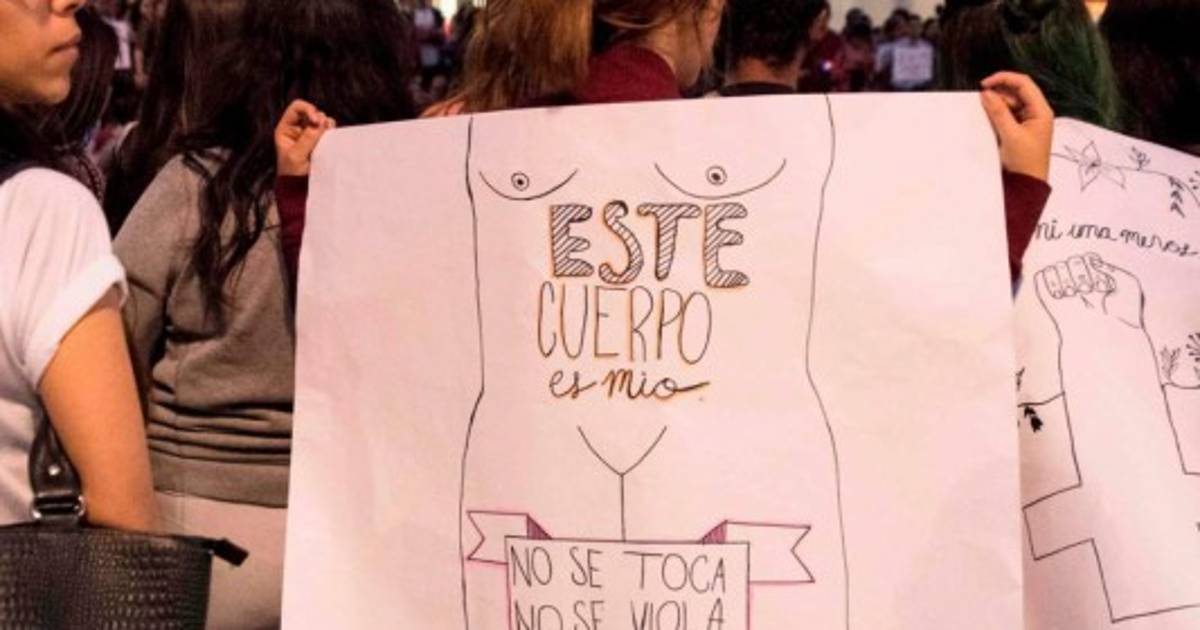 ESTE
CUERPO
es mio.
NO SE TOCA
NO SE VIOLA
ni una menos